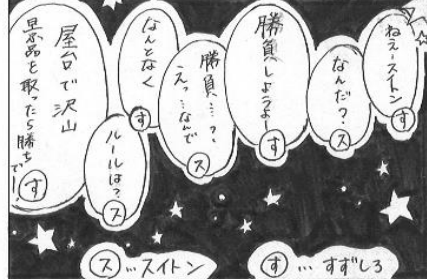 ねぇースイトン
す
なんだ?
ス
勝負しようよー
す
勝負…?
えっ…なんで
ス
なんとなく
す
ルールは?
ス
屋台で沢山
景品を取ったら勝ち
でー!
す
ス…スイトン
す…すずしろ